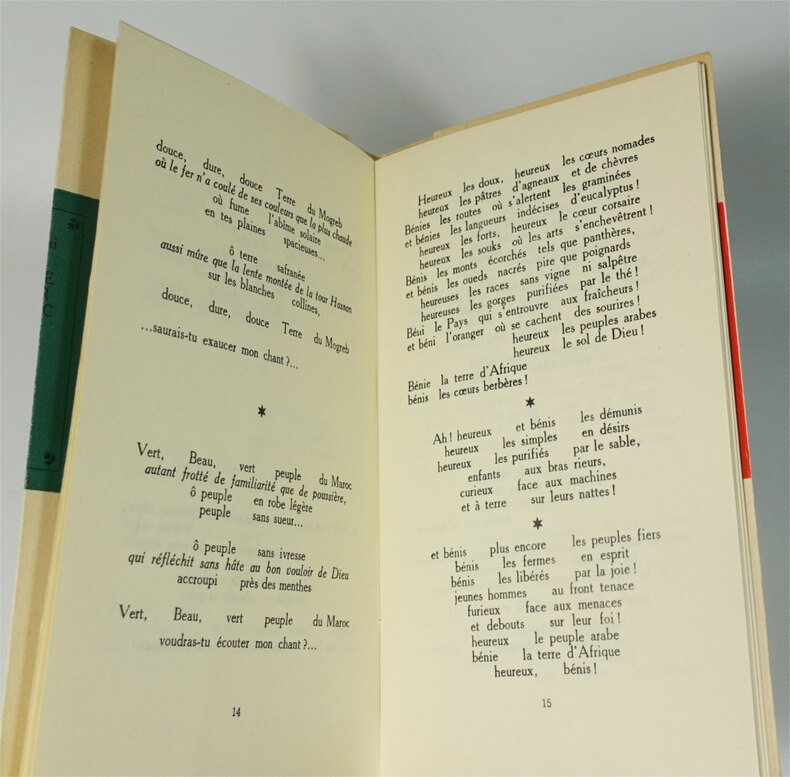 douce, dure, douce Terre du Mogreb
où le fer n'a coulé de ses couleurs que la plus chaude
où fume l'abîme solaire
en tes plaines spacieuses...
ô terre safranée
aussi mûre que la lente montée de la tour Hassan
sur les blanches collines,
douce, dure, douce Terre du Mogreb
...saurais-tu exaucer mon chant ?...
Vert, Beau, vert peuple du Maroc
autant frotté de familiarité que de poussière,
ô peuple en robe légère
peuple sans sueur...
ô peuple sans ivresse
qui réfléchit sans hâte au bon vouloir de Dieu
accroupi près des menthes
Vert, Beau, vert peuple du Maroc
voudras-tu écouter mon chant ?...
14
Heureux les doux, heureux les cœurs nomades
heureux les pâtres d'agneaux et de chèvres
Bénies les routes où s'alertent les graminées
et bénies les langueurs indécises d'eucalyptus !
heureux les forts, heureux le cœur corsaire
heureux les souks où les arts s'enchevêtrent !
Bénis les monts écorchés tels que panthères,
et bénis les oueds nacrés pire que poignards
heureuses les races sans vigne ni salpêtre
heureuses les gorges purifiées par le thé !
Béni le Pays qui s'entrouve aux fraîcheurs !
et béni l'oranger où se cachent des sourires !
heureux les peuples arabes
heureux le sol de Dieu !
Bénie la terre d'Afrique
bénis les cœurs berbères !
Ah ! heureux et bénis les démunis
heureux les simples en désirs
heureux les purifiés par le sable,
enfants aux bras rieurs,
curieux face aux machines
et à terre sur leurs nattes !
et bénis plus encore les peuples fiers
bénis les fermes en esprit
bénis les libérés par la joie !
jeunes hommes au front tenace
furieux face aux menaces
et debouts sur leur foi !
heureux le peuple arabe
bénie la terre d'Afrique
heureux, bénis !
15